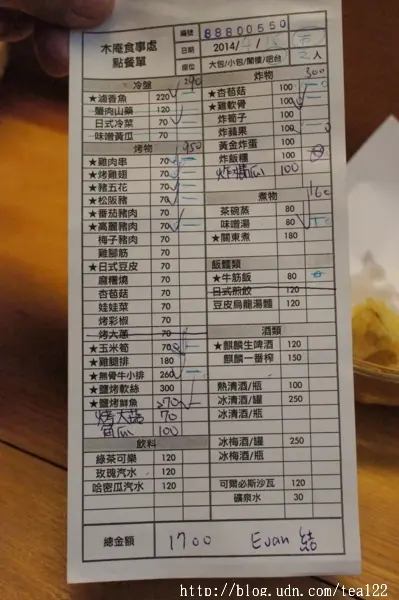 木庵食事處
點餐單
編號 88800550
日期 2014/
座位 大包/小包/閣樓/吧台 2人
冷盤 290
★滷香魚 220
蟹肉山藥 120
日式冷菜 70
味噌黃瓜 70
烤物 950
★雞肉串 70
★烤雞翅 70
★豬五花 70
★松阪豬 70
★番茄豬肉 70
★高麗豬肉 70
梅子豬肉 70
雞腳筋 70
★日式豆皮 70
麻糬燒 70
杏苞菇 70
娃娃菜 70
烤彩椒 70
烤大蔥 70
★玉米筍 70
★雞腿排 180
★無骨牛小排 260
★鹽烤軟絲 300
★鹽烤鮮魚 270
70
100
飲料
綠茶可樂 120
玫瑰汽水 120
哈密瓜汽水 120
炸物 300
★杏苞菇 100
★雞軟骨 100
炸筍子 100
炸蘋果 100
黃金炸蛋 100
炸飯糰 100
100
煮物 160
茶碗蒸 80
味噌湯 80
★關東煮 180
飯麵類
★牛筋飯 80
日式煎餃 120
豆皮烏龍湯麵 120
酒類
★麒麟生啤酒 120
麒麟一番榨 150
熱清酒/瓶 100
冰清酒/罐 250
冰清酒/瓶
冰梅酒/罐 250
冰梅酒/瓶
可爾必斯沙瓦 120
礦泉水 30
總金額 1700 Evan 結
http://blog.udn.com/tea122